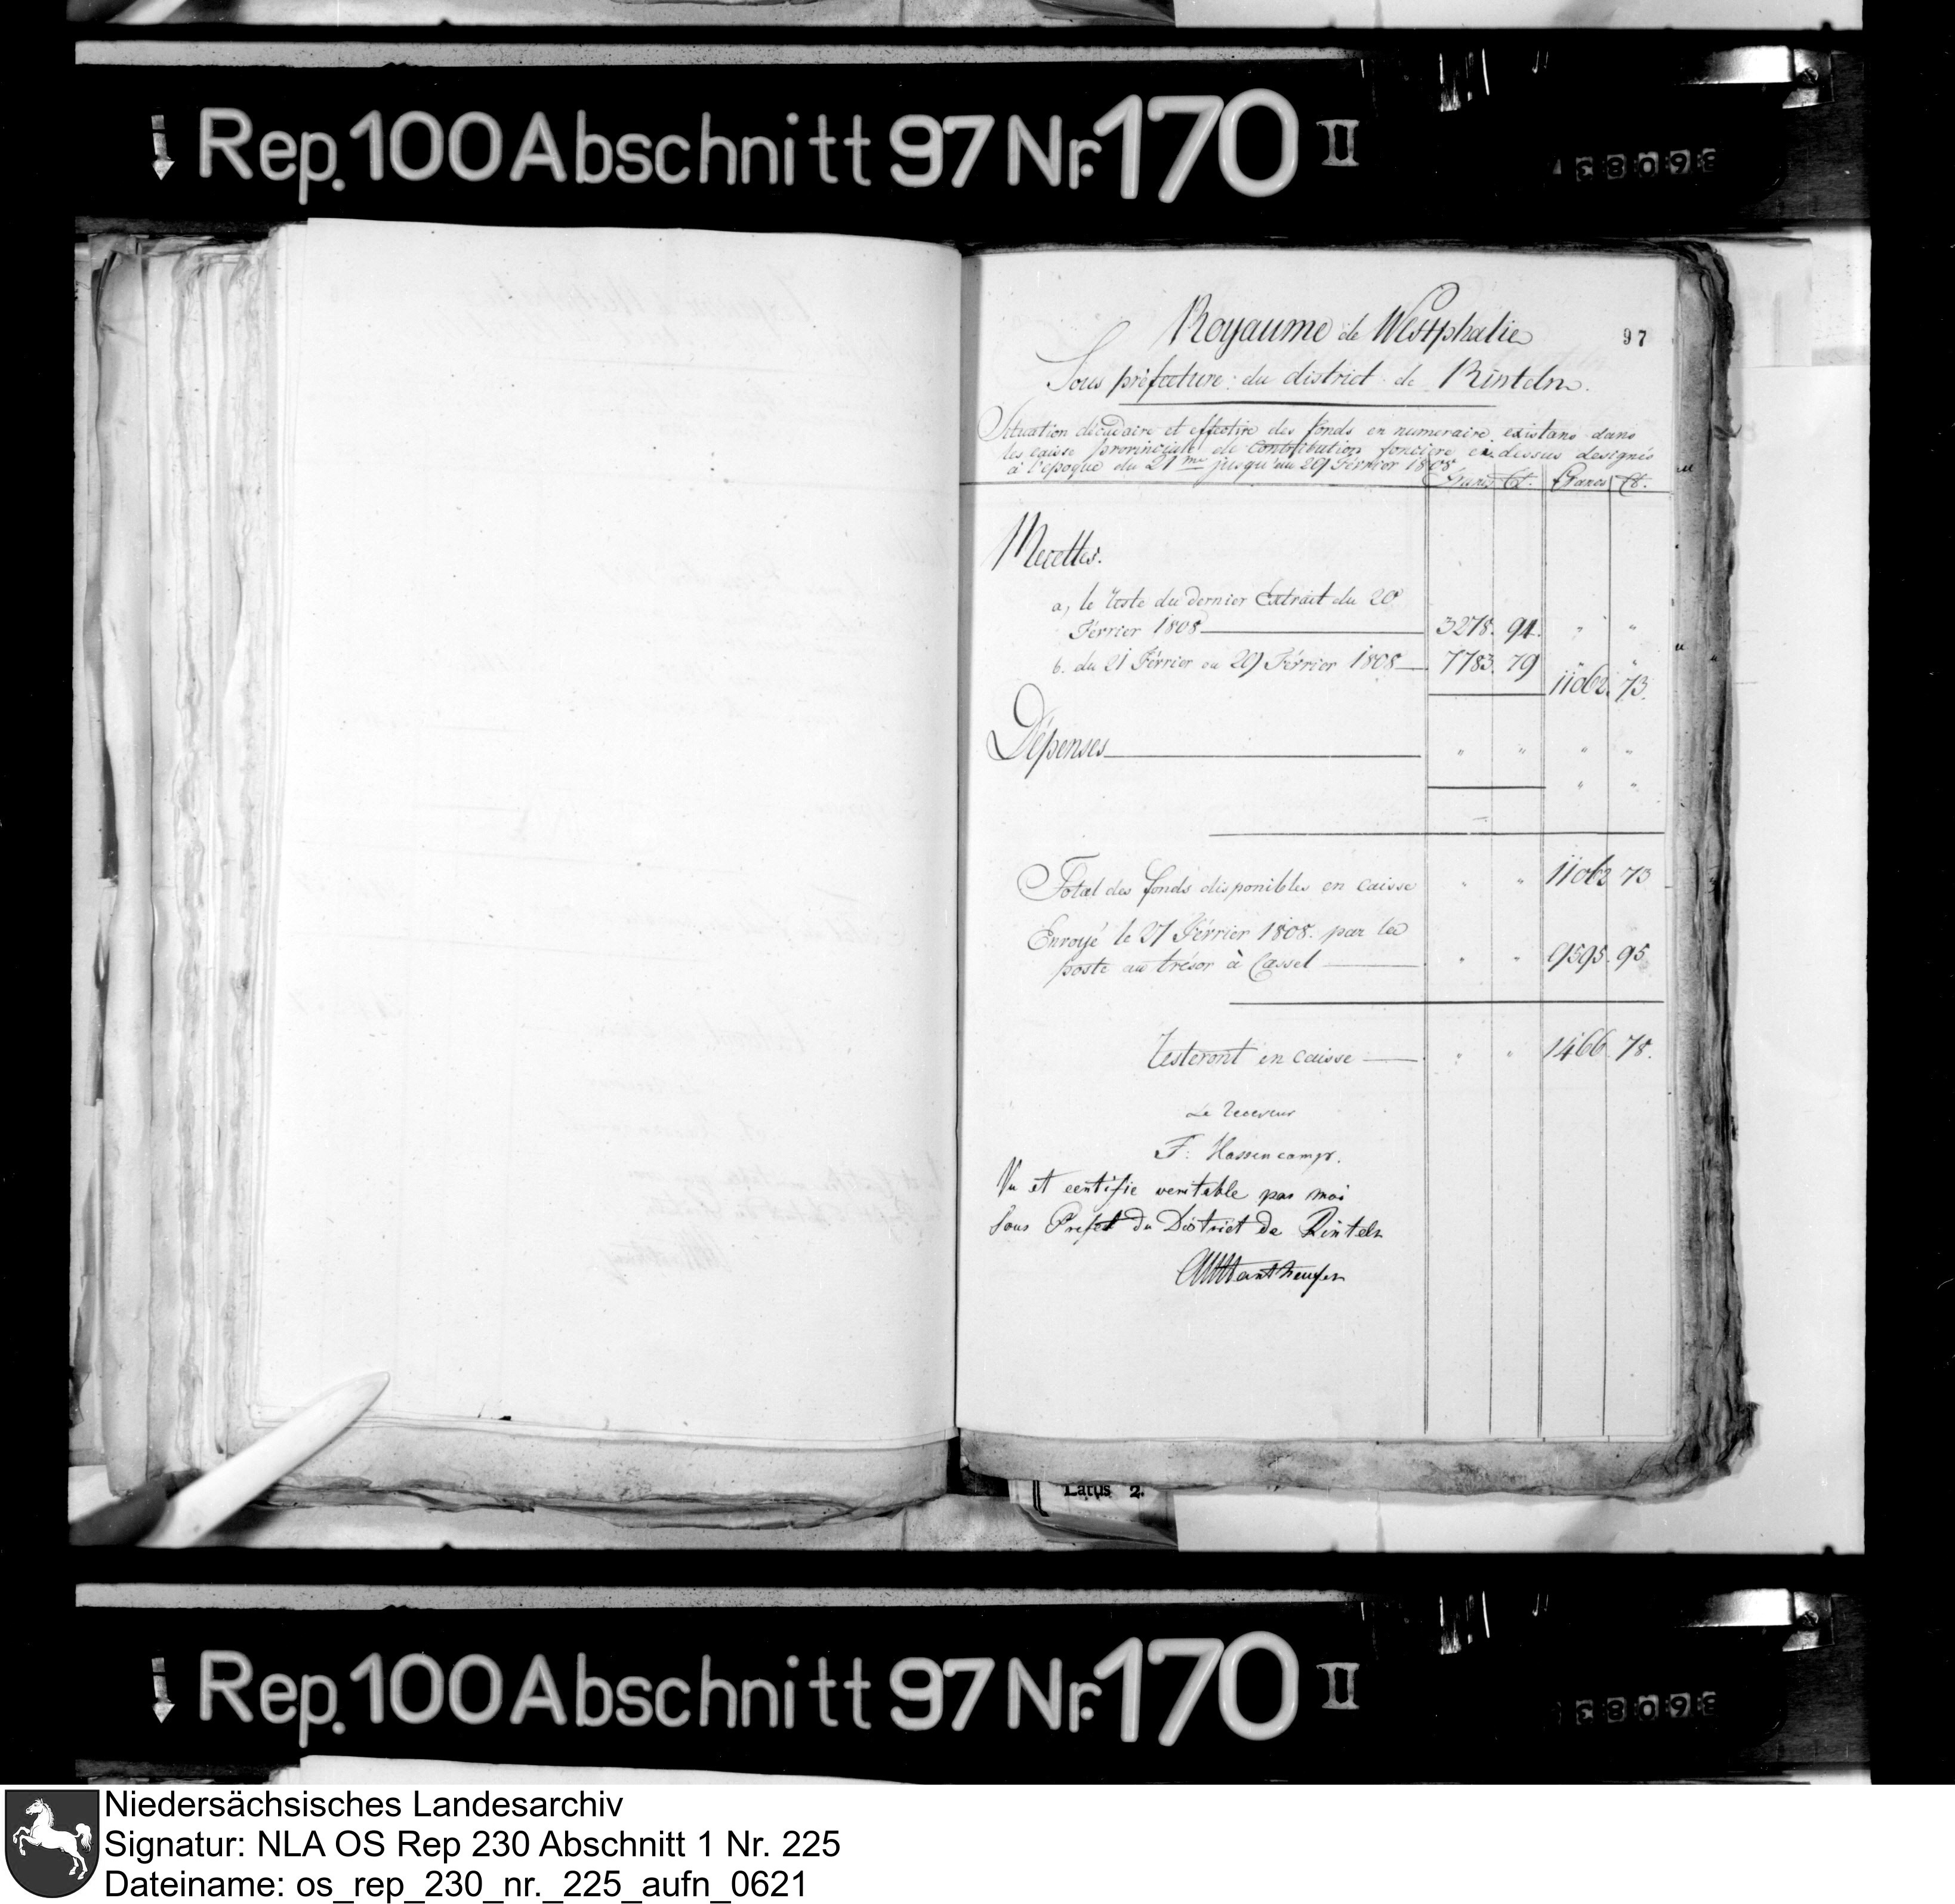 Rep. 100 Abschnitt 97 Nr. 170 II
Royaume de Westphalie
97
Sous préfecture du district de Rinteln.
Situation décadaire et effective des fonds en numeraire existans dans
les caisse provinciale de Contribution foncière ci dessus designés
à l'époque du 21me jusqu'au 29 Février 1808
Francs Ct. Francs Ct.
Recettes.
a, le reste du dernier Extrait du 20
Février 1808 3278. 94. " "
b. du 21 Février au 29 Février 1808 7783. 79 " "
11062. 73.
Dépenses " " " "
" "
Total des fonds disponibles en caisse " " 11062 73
Envoyé le 27 Février 1808. par la
poste au trésor à Cassel " " 9595. 95
resteront en caisse " " 1466. 78.
Le receveur
F. Hassencamp.
Vu et certifie veritable par moi
Sous Prefet du District de Rinteln
Latus 2.
Rep. 100 Abschnitt 97 Nr. 170 II
Niedersächsisches Landesarchiv
Signatur: NLA OS Rep 230 Abschnitt 1 Nr. 225
Dateiname: os_rep_230_nr._225_aufn_0621